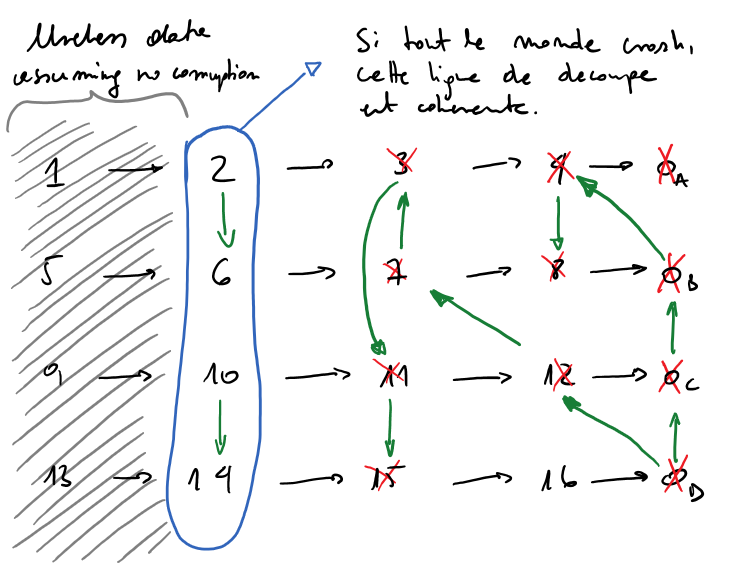 Useless data
assuming no corruption
Si tout le monde crash,
cette ligne de decoupe
est coherente.
1 2 3 4 0A
5 6 7 8 0B
9 10 11 12 0C
13 14 15 16 0D